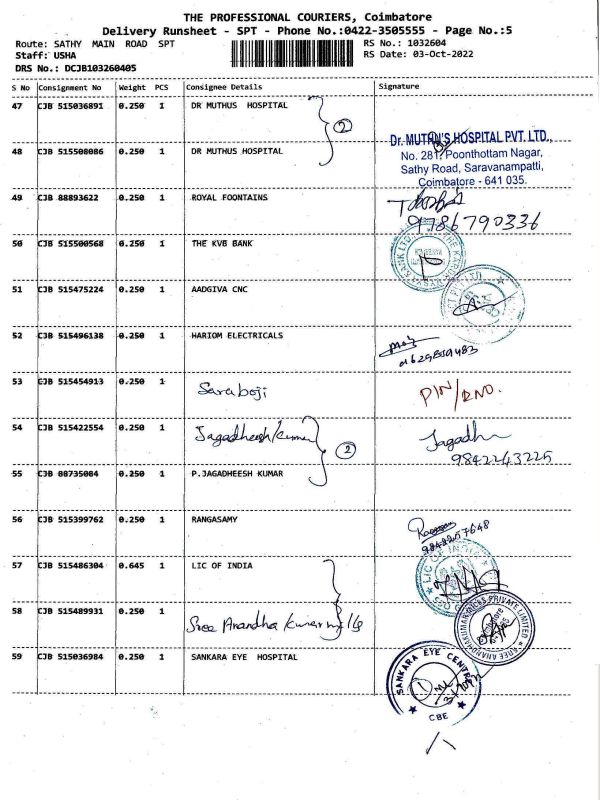 THE PROFESSIONAL COURIERS, Coimbatore
Delivery Runsheet - SPT - Phone No.:0422-3505555 - Page No.:5
Route: SATHY MAIN ROAD SPT
RS No.: 1032604
Staff: USHA
RS Date: 03-Oct-2022
DRS No.: DCJB103260405
S No Consignment No Weight PCS Consignee Details Signature
47 CJB 515036891 0.250 1 DR MUTHUS HOSPITAL
2
48 CJB 515508086 0.250 1 DR MUTHUS HOSPITAL
Dr. MUTHU'S HOSPITAL PVT. LTD.,
No. 281, Poonthottam Nagar,
Sathy Road, Saravanampatti,
Coimbatore - 641 035.
49 CJB 88893622 0.250 1 ROYAL FOONTAINS
9786790336
50 CJB 515500568 0.250 1 THE KVB BANK
51 CJB 515475224 0.250 1 AADGIVA CNC
52 CJB 515496138 0.250 1 HARIOM ELECTRICALS
53 CJB 515454913 0.250 1 Saraboji
PIN/RNO.
54 CJB 515422554 0.250 1 Jagadheesh kumar
2
Jagadh
9842243225
55 CJB 08735084 0.250 1 P.JAGADHEESH KUMAR
56 CJB 515399762 0.250 1 RANGASAMY
9842257648
57 CJB 515486304 0.645 1 LIC OF INDIA
LIC OF INDIA
58 CJB 515489931 0.250 1 Sree Anandhakumar mills
59 CJB 515036984 0.250 1 SANKARA EYE HOSPITAL
SANKARA EYE CENTRE
CBE